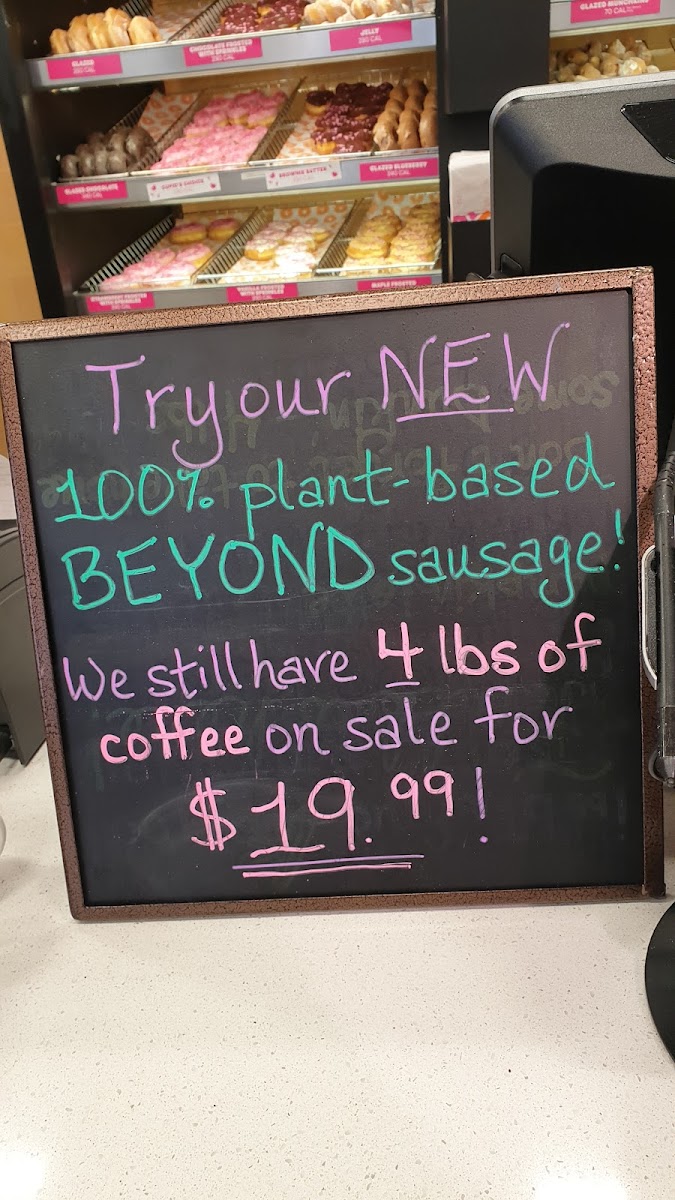 GLAZED
CHOCOLATE FROSTED
WITH SPRINKLES
JELLY
GLAZED MUNCHKINS
70 CAL
GLAZED CHOCOLATE
CUPID'S CHOICE
BROWNIE BATTER
GLAZED BLUEBERRY
STRAWBERRY FROSTED
WITH SPRINKLES
VANILLA FROSTED
WITH SPRINKLES
MAPLE FROSTED
Try our NEW
100% plant-based
BEYOND sausage!
We still have 4 lbs of
coffee on sale for
$19.99!